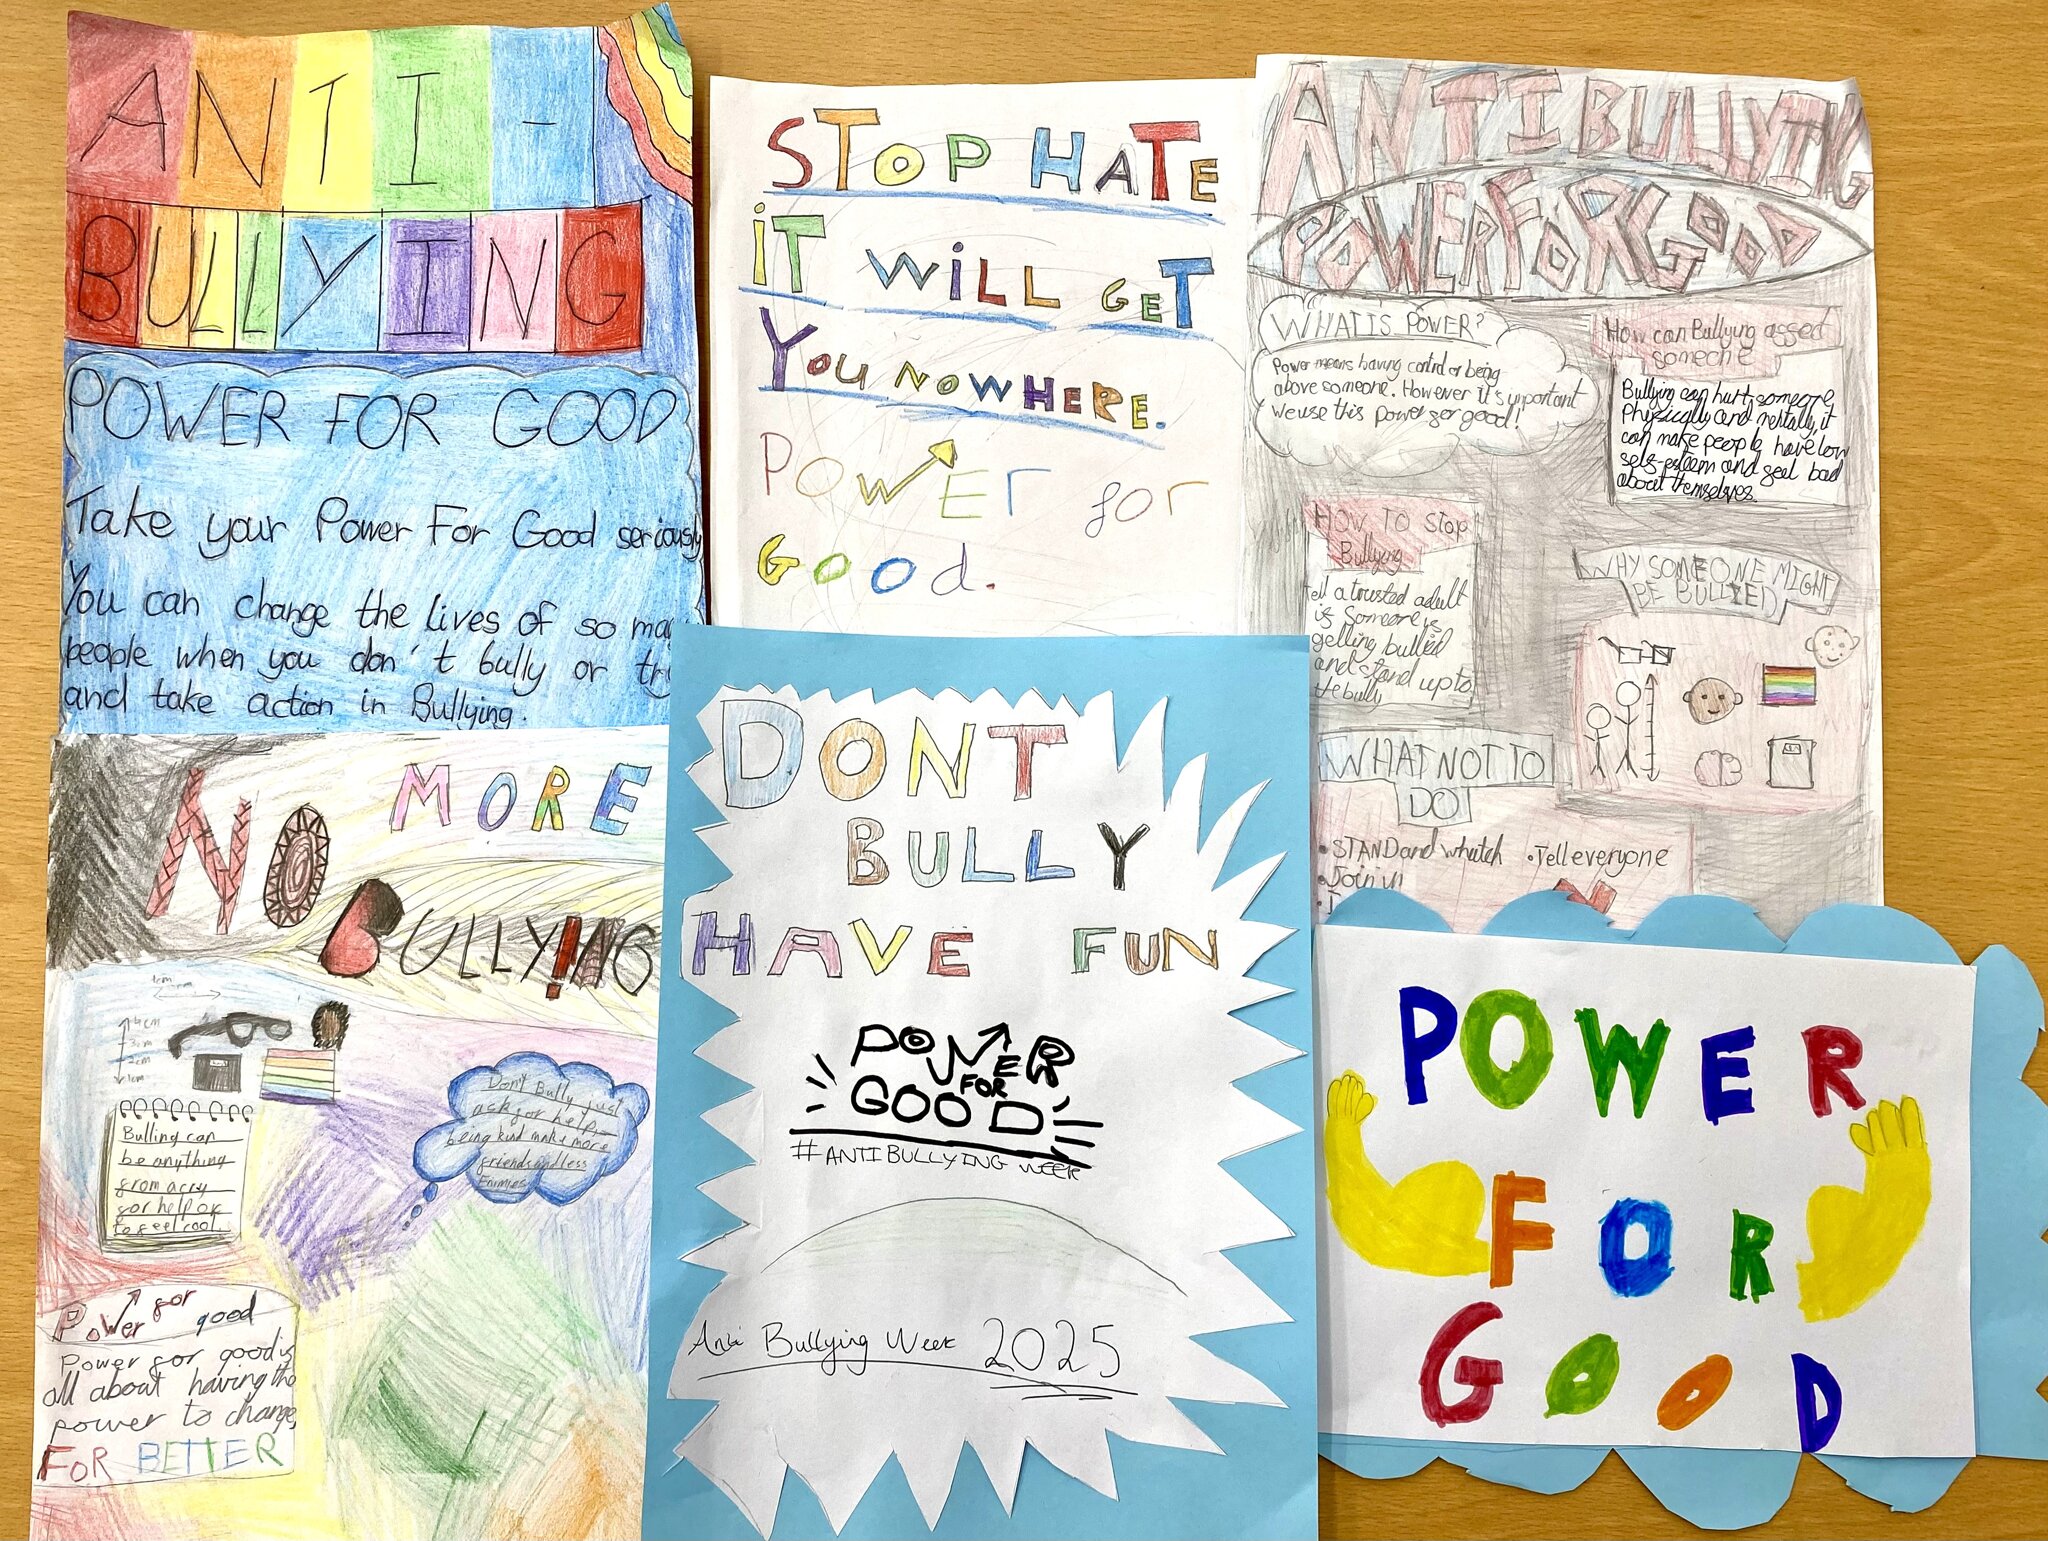 ANTI-
BULLYING
POWER FOR GOOD
Take your Power For Good seriously
You can change the lives of so many
people when you don't bully or try
and take action in Bullying.
STOP HATE
iT WiLL GET
You NOWHERE.
POWER for
GOOd.
ANTI BULLYING
POWER FOR GOOD
WHAT IS POWER?
Power means having control or being
above someone. However it's important
we use this power for good!
How can Bullying affect
someone
Bullying can hurt someone
Physically and mentally, it
can make people have low
self-esteem and feel bad
about themselves.
HOW TO STOP
Bullying
Tell a trusted adult
if someone is
getting bullied
and stand up to
the bully
WHY SOMEONE MIGHT
BE BULLIED
WHAT NOT TO
DO
•STAND and whatch
•Tell everyone
•Join in
NO MORE
BULLY!NG
4cm
3cm
2cm
1cm
Bulling can
be anything
from a cry
for help or
to feel cool.
Don't Bully just
ask for help,
being kind make more
friends and less
Enimies
Power for good
Power for good is
all about having the
power to change,
FOR BETTER
DONT
BULLY
HAVE FUN
POWER
FOR
GOOD
#ANTIBULLYING WEEK
Anti Bullying Week 2025
POWER
FOR
GOOD